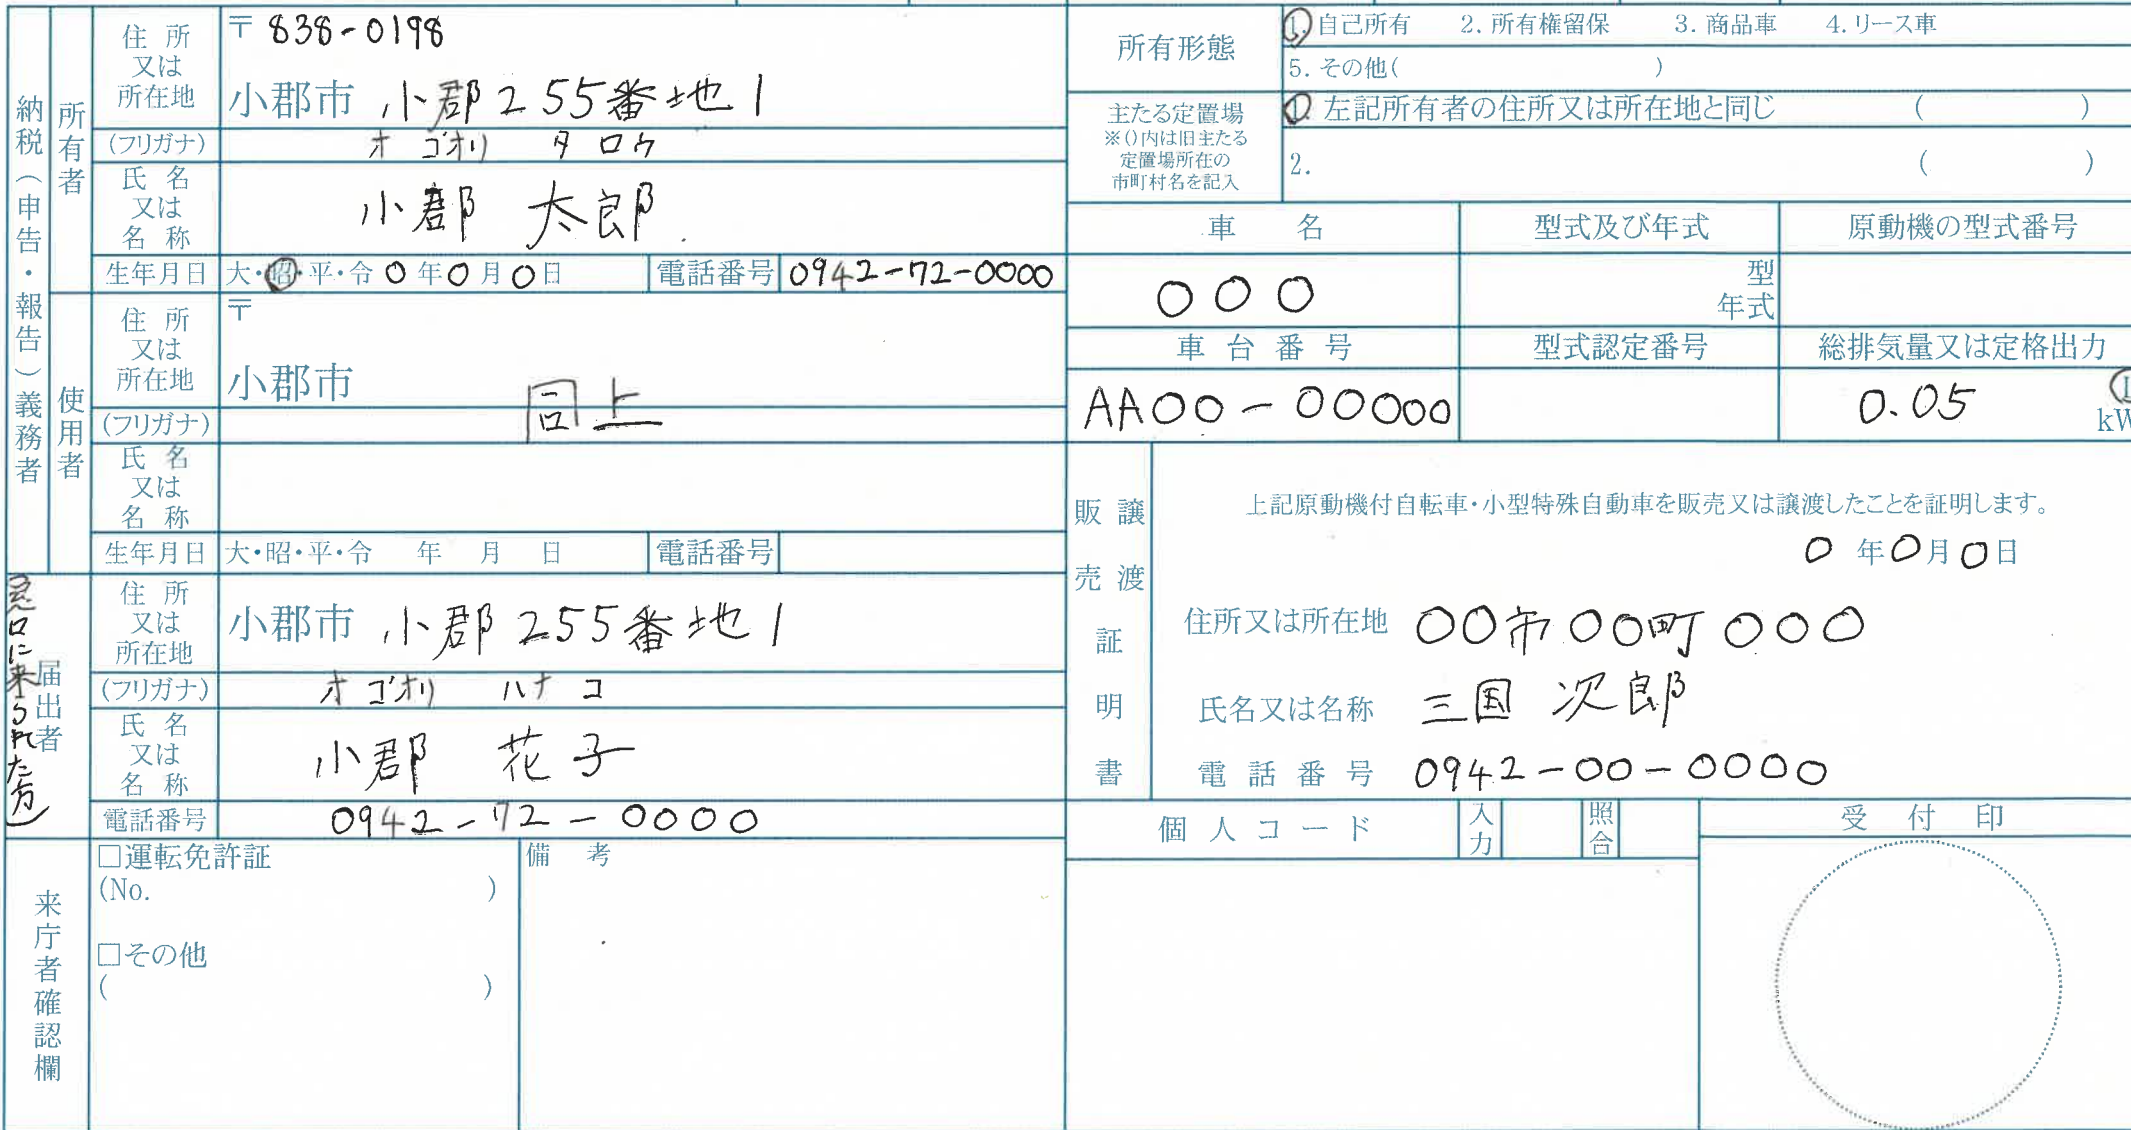 納税(申告・報告)義務者
所有者
住所又は所在地
〒 838-0198
小郡市 小郡255番地1
(フリガナ) オゴオリ タロウ
氏名又は名称 小郡 太郎
生年月日 大・昭・平・令 0年0月0日 電話番号 0942-72-0000
使用者
住所又は所在地
〒
小郡市
同上
(フリガナ)
氏名又は名称
生年月日 大・昭・平・令 年 月 日 電話番号
届出者
窓口に来られた方)
住所又は所在地 小郡市 小郡255番地1
(フリガナ) オゴオリ ハナコ
氏名又は名称 小郡 花子
電話番号 0942-72-0000
来庁者確認欄
□運転免許証
(No. )
□その他
( )
備考
所有形態
1. 自己所有 2. 所有権留保 3. 商品車 4. リース車
5. その他( )
主たる定置場
※()内は旧主たる
定置場所在の
市町村名を記入
1. 左記所有者の住所又は所在地と同じ ( )
2. ( )
車名 型式及び年式 原動機の型式番号
000 型
年式
車台番号 型式認定番号 総排気量又は定格出力
AA00-00000 0.05
kW
販売譲渡証明書
上記原動機付自転車・小型特殊自動車を販売又は譲渡したことを証明します。
0年0月0日
住所又は所在地 〇〇市〇〇町〇〇〇
氏名又は名称 三国 次郎
電話番号 0942-00-0000
個人コード 入力 照合 受付印